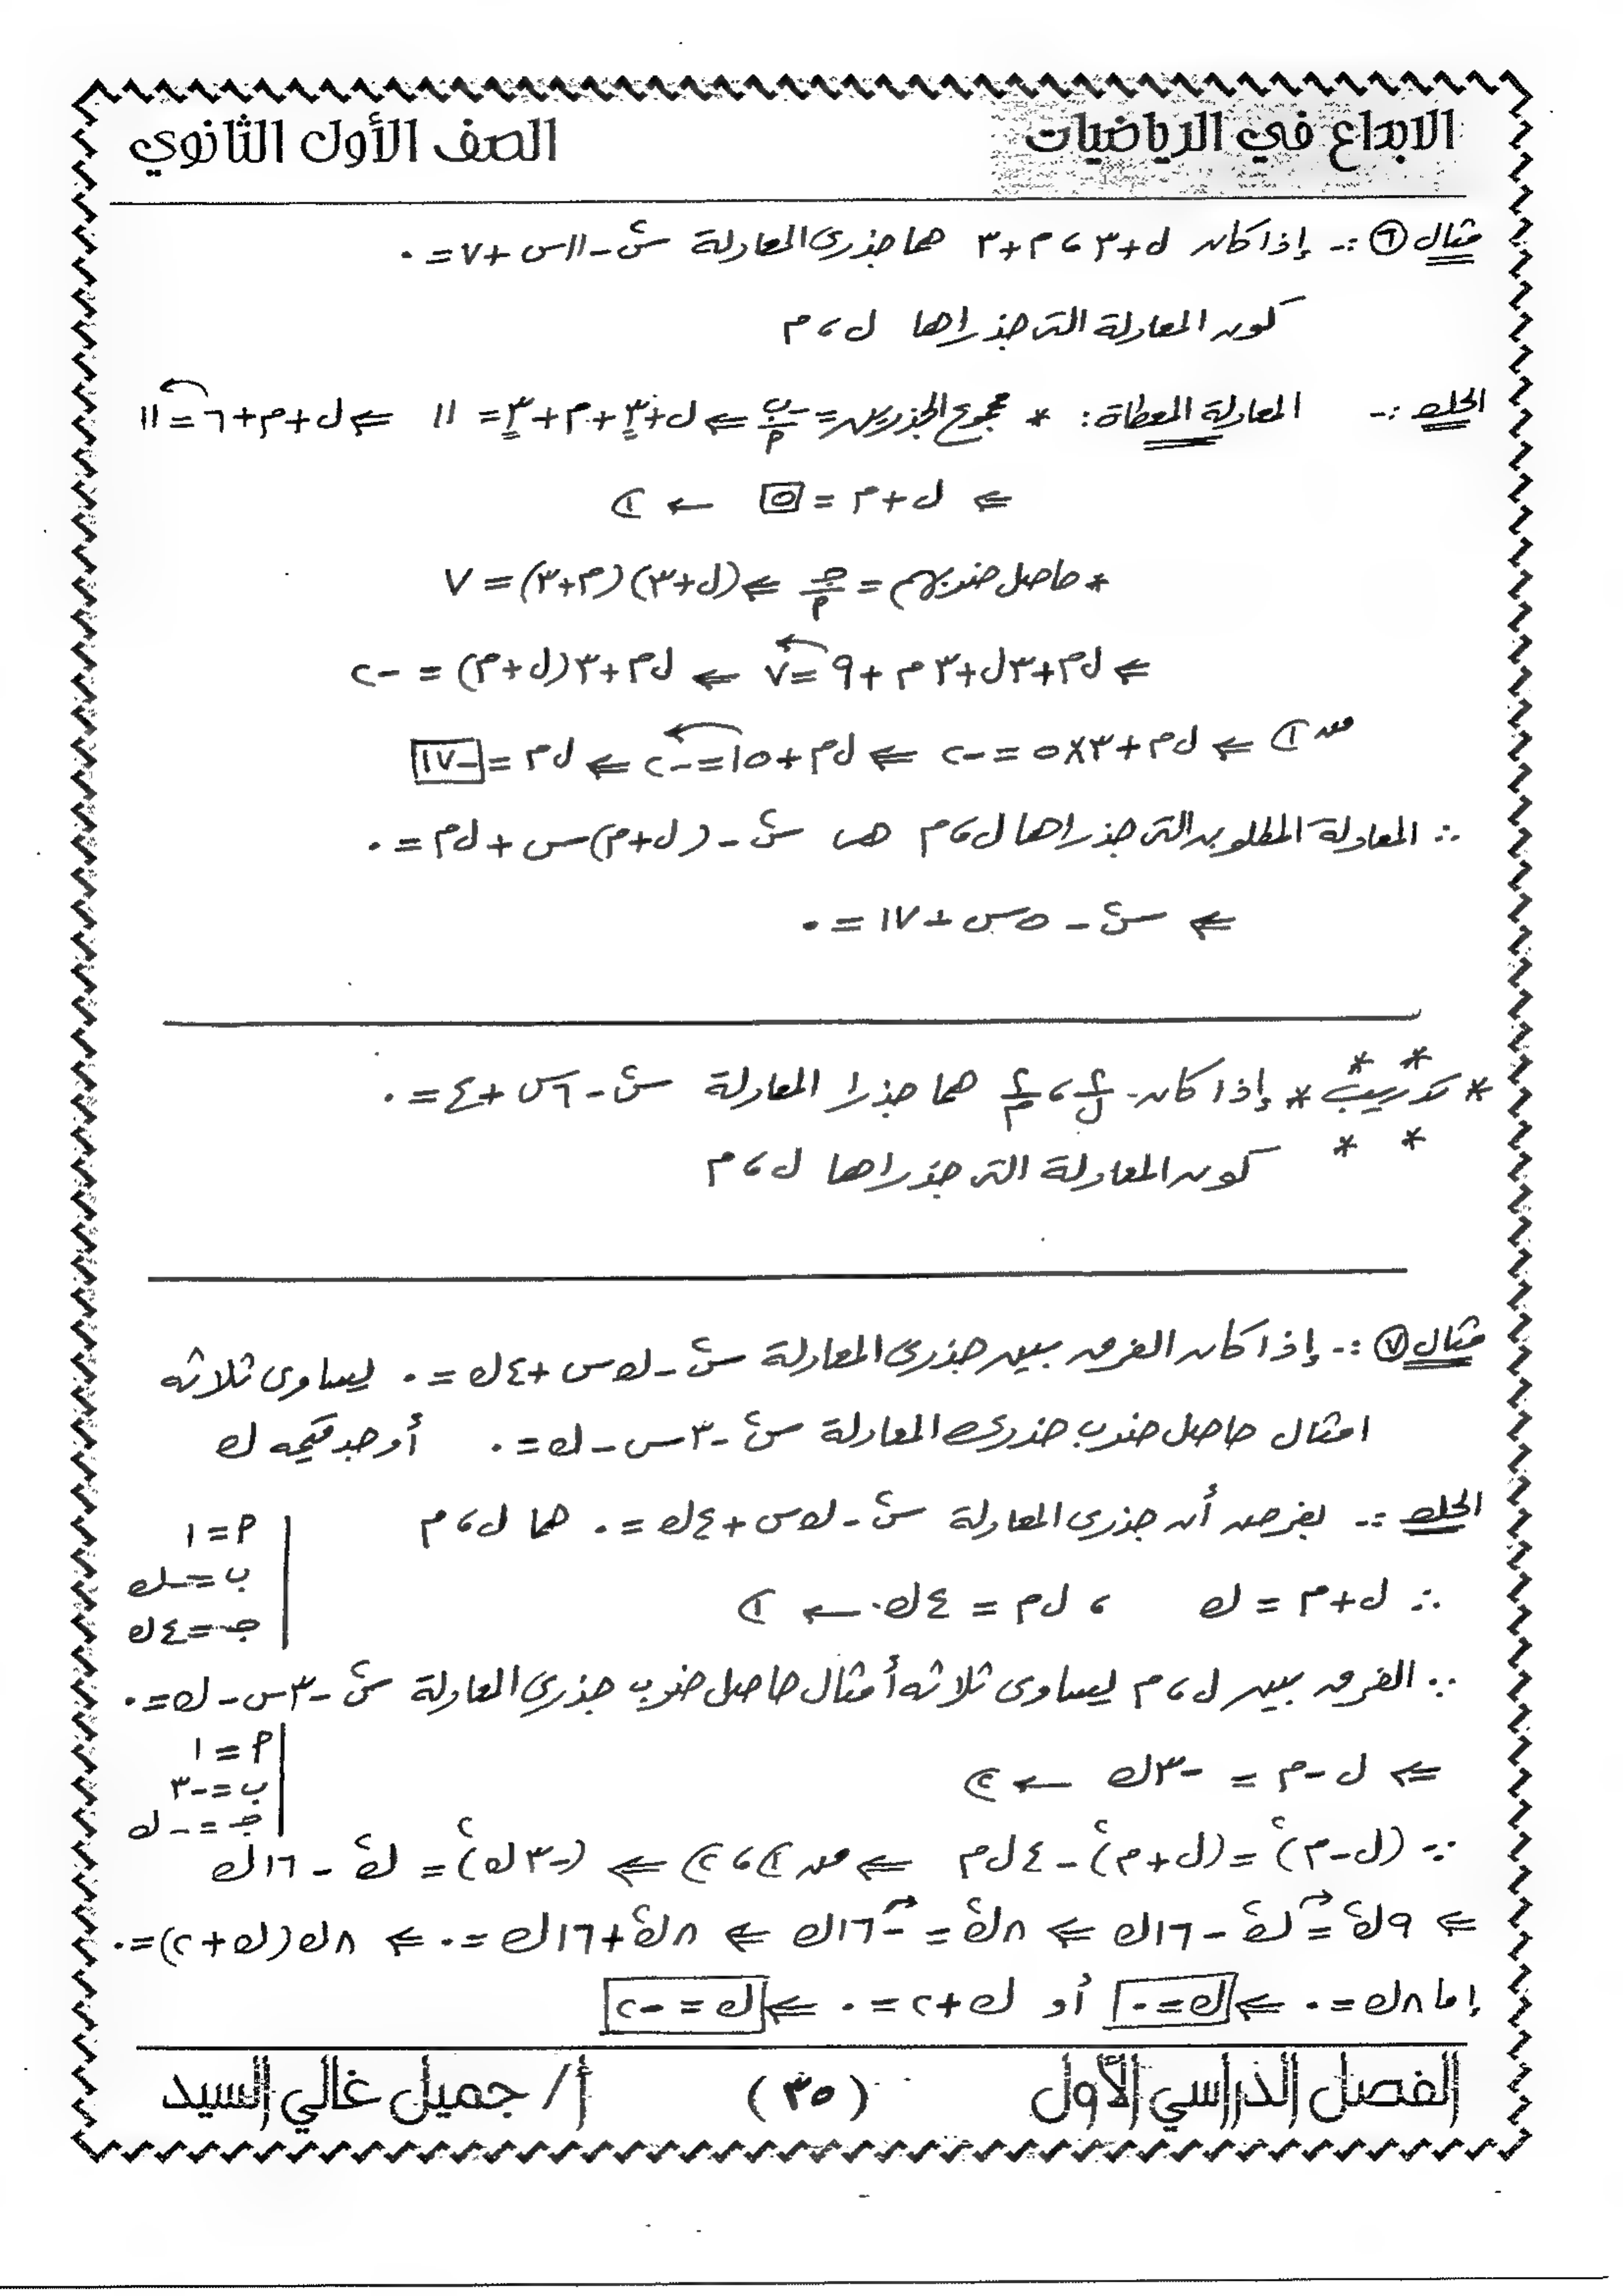 الابداع في الرياضيات
الصف الأول الثانوي
مثال ٦ :- إذا كان ل+٣ ، م+٣ هما جذرى المعادلة س٢ - ١١س + ٧ = ٠
كون المعادلة التى جذراها ل ، م
الحل :- المعادلة المعطاة : * مجموع الجذرين = -ب/م ⇐ ل+٣+م+٣ = ١١ ⇐ ل+م+٦ = ١١
⇐ ل+م = ٥ ← ١
* حاصل ضربهم = جـ/م ⇐ (ل+٣)(م+٣) = ٧
⇐ ل م+٣ل+٣م+٩ = ٧ ⇐ ل م+٣(ل+م) = -٢
من ١ ⇐ ل م+٣×٥ = -٢ ⇐ ل م+١٥ = -٢ ⇐ ل م = -١٧
∴ المعادلة المطلوبه التى جذراها ل ، م هى س٢ - (ل+م)س + ل م = ٠
⇐ س٢ - ٥س + ١٧ = ٠
* تدريب * إذا كان ٢/ل ، ٢/م هما جذرا المعادلة س٢ - ٦س + ٤ = ٠
كون المعادلة التى جذراها ل ، م
مثال ٧ :- إذا كان الفرق بين جذرى المعادلة س٢ - ك س + ٤ك = ٠ يساوى ثلاثه
امثال حاصل ضرب جذرى المعادلة س٢ - ٣س - ك = ٠ أوجد قيمه ك
الحل :- بفرض أن جذرى المعادلة س٢ - ك س + ٤ك = ٠ هما ل ، م
م = ١
ب = -ك
جـ = ٤ك
∴ ل+م = ك ، ل م = ٤ك ← ١
∵ الفرق بين ل ، م يساوى ثلاثه أمثال حاصل ضرب جذرى المعادلة س٢ - ٣س - ك = ٠
م = ١
ب = -٣
جـ = -ك
⇐ ل - م = -٣ك ← ٢
∵ (ل-م)٢ = (ل+م)٢ - ٤ل م ⇐ من ١ ، ٢ ⇐ (-٣ك)٢ = ك٢ - ١٦ك
⇐ ٩ك٢ = ك٢ - ١٦ك ⇐ ٨ك٢ = -١٦ك ⇐ ٨ك٢+١٦ك = ٠ ⇐ ٨ك(ك+٢) = ٠
إما ٨ك = ٠ ⇐ ك = ٠ أو ك+٢ = ٠ ⇐ ك = -٢
الفصل الدراسي الأول
( ٣٥ )
أ / جميل غالي السيد